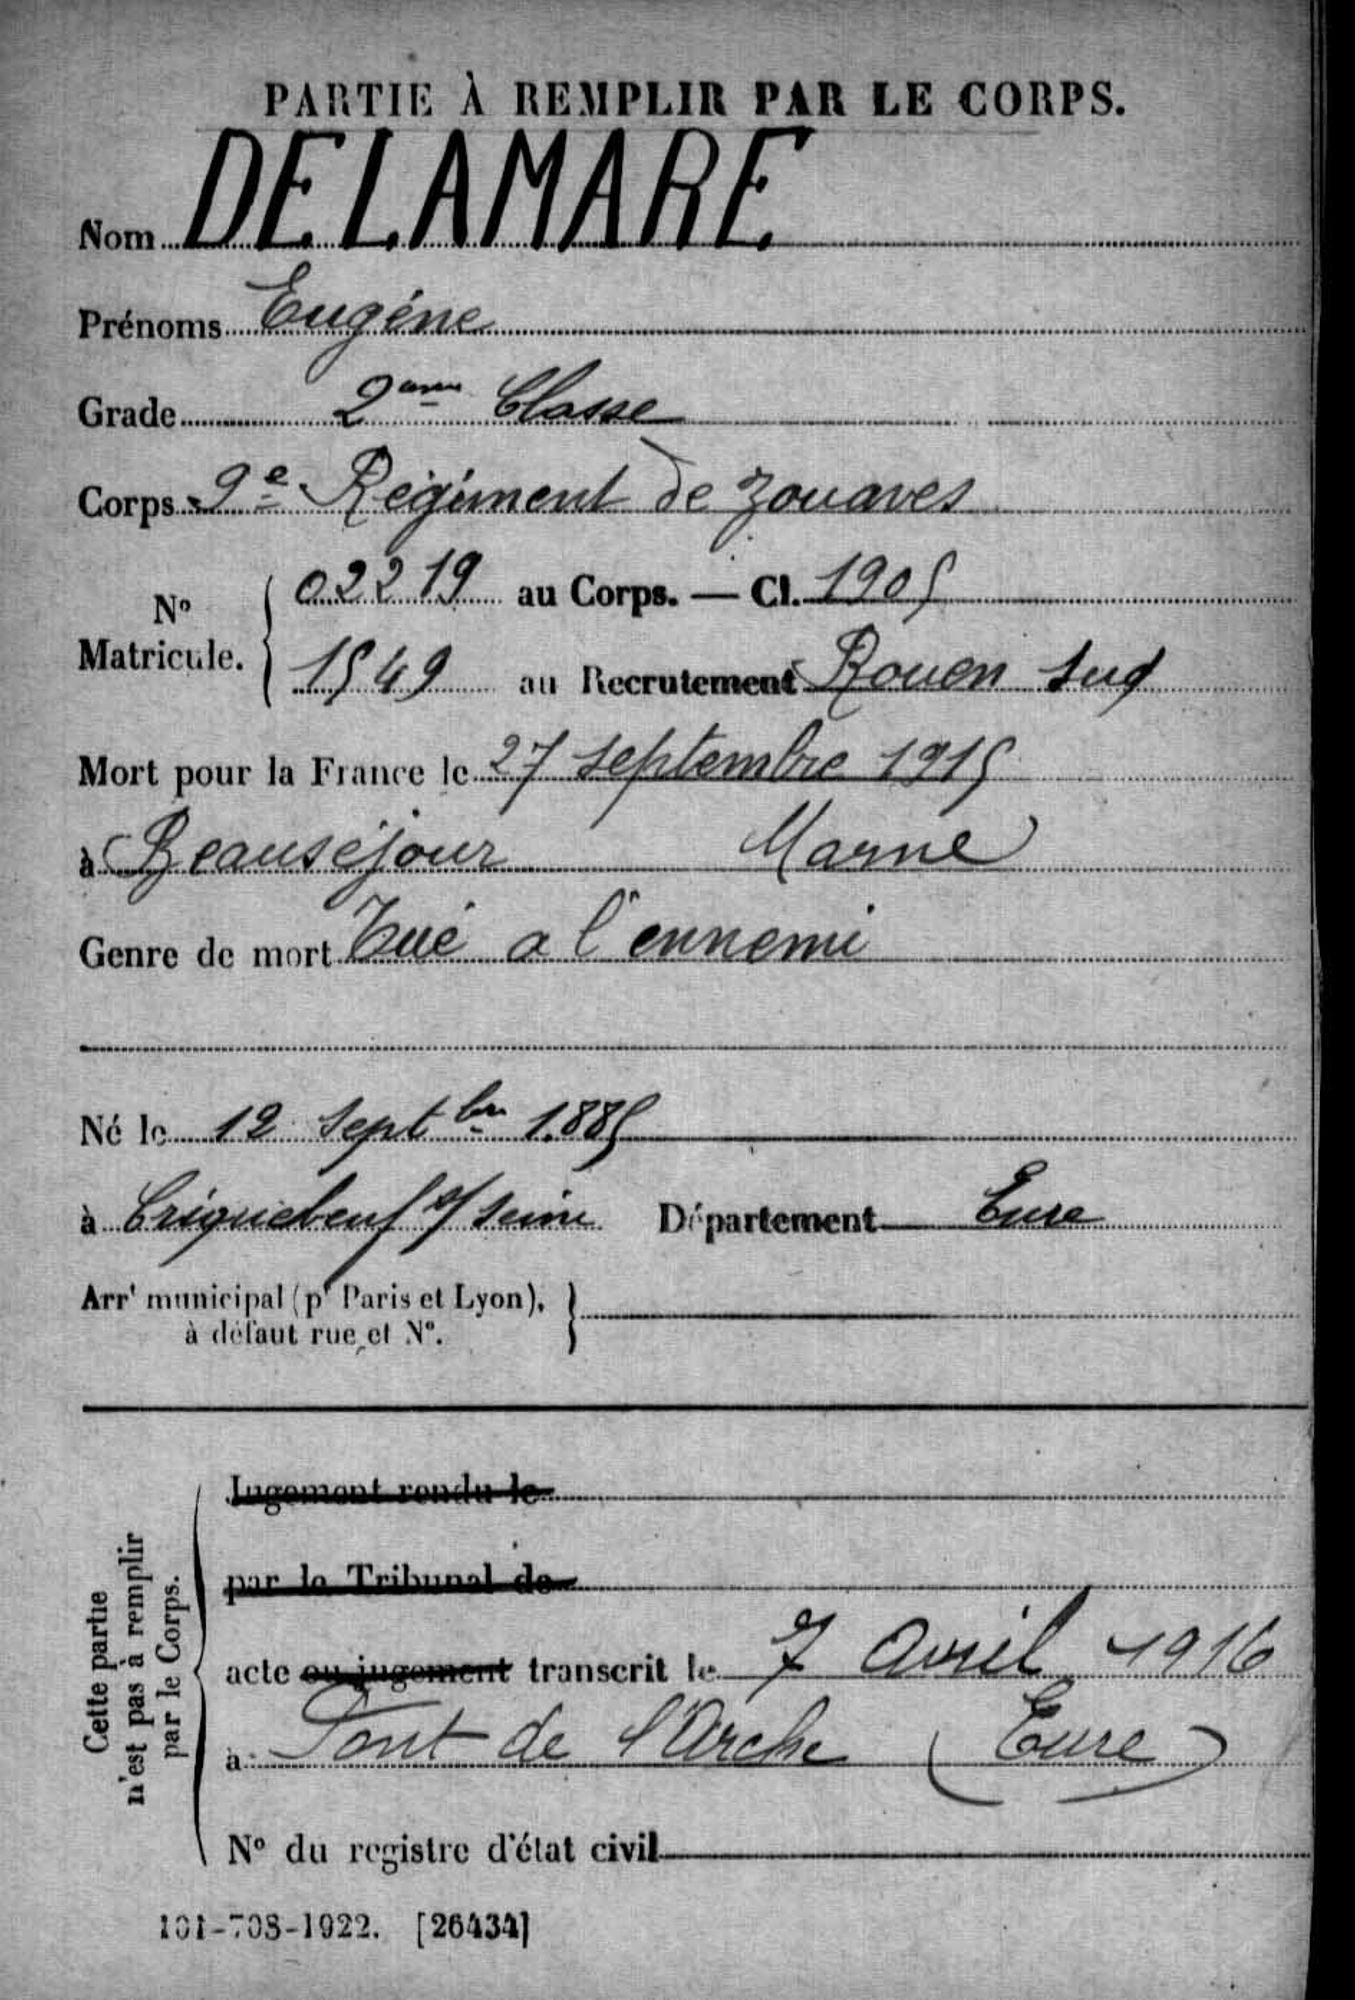 PARTIE À REMPLIR PAR LE CORPS.
Nom DELAMARE
Prénoms Eugéne
Grade 2ème Classe
Corps 9e Régiment de zouaves
No Matricule. { 02219 au Corps. — Cl. 1905
1549 au Recrutement Rouen Sud
Mort pour la France le 27 septembre 1915
à Beauséjour Marne
Genre de mort Tué a l'ennemi
Né le 12 Septbre 1885
à Criquebeuf s/ Seine Département Eure
Arrt municipal (pr Paris et Lyon), }
à défaut rue et No.
Cette partie
n'est pas à remplir
par le Corps.
Jugement rendu le
par le Tribunal de
acte ou jugement transcrit le 7 Avril 1916
à Pont de l'Arche (Eure)
No du registre d'état civil
101-708-1922. [26434]